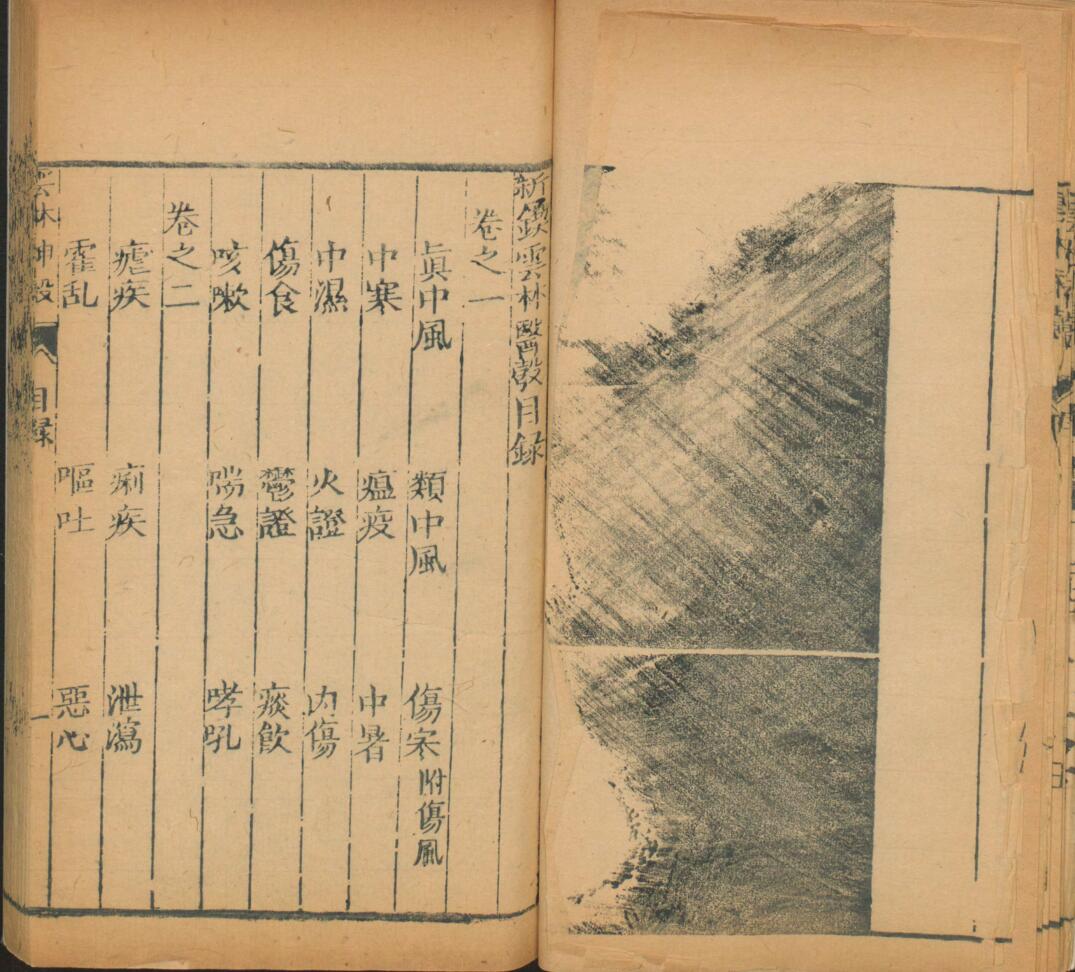 新鍥雲林醫彀目録
卷之一
眞中風 類中風 傷寒附傷風
中寒 瘟疫 中暑
中濕 火證 内傷
傷食 鬱證 痰飲
咳嗽 喘急 哮吼
卷之二
瘧疾 痢疾 泄瀉
霍乱 嘔吐 惡心
雲林神彀 目録 一